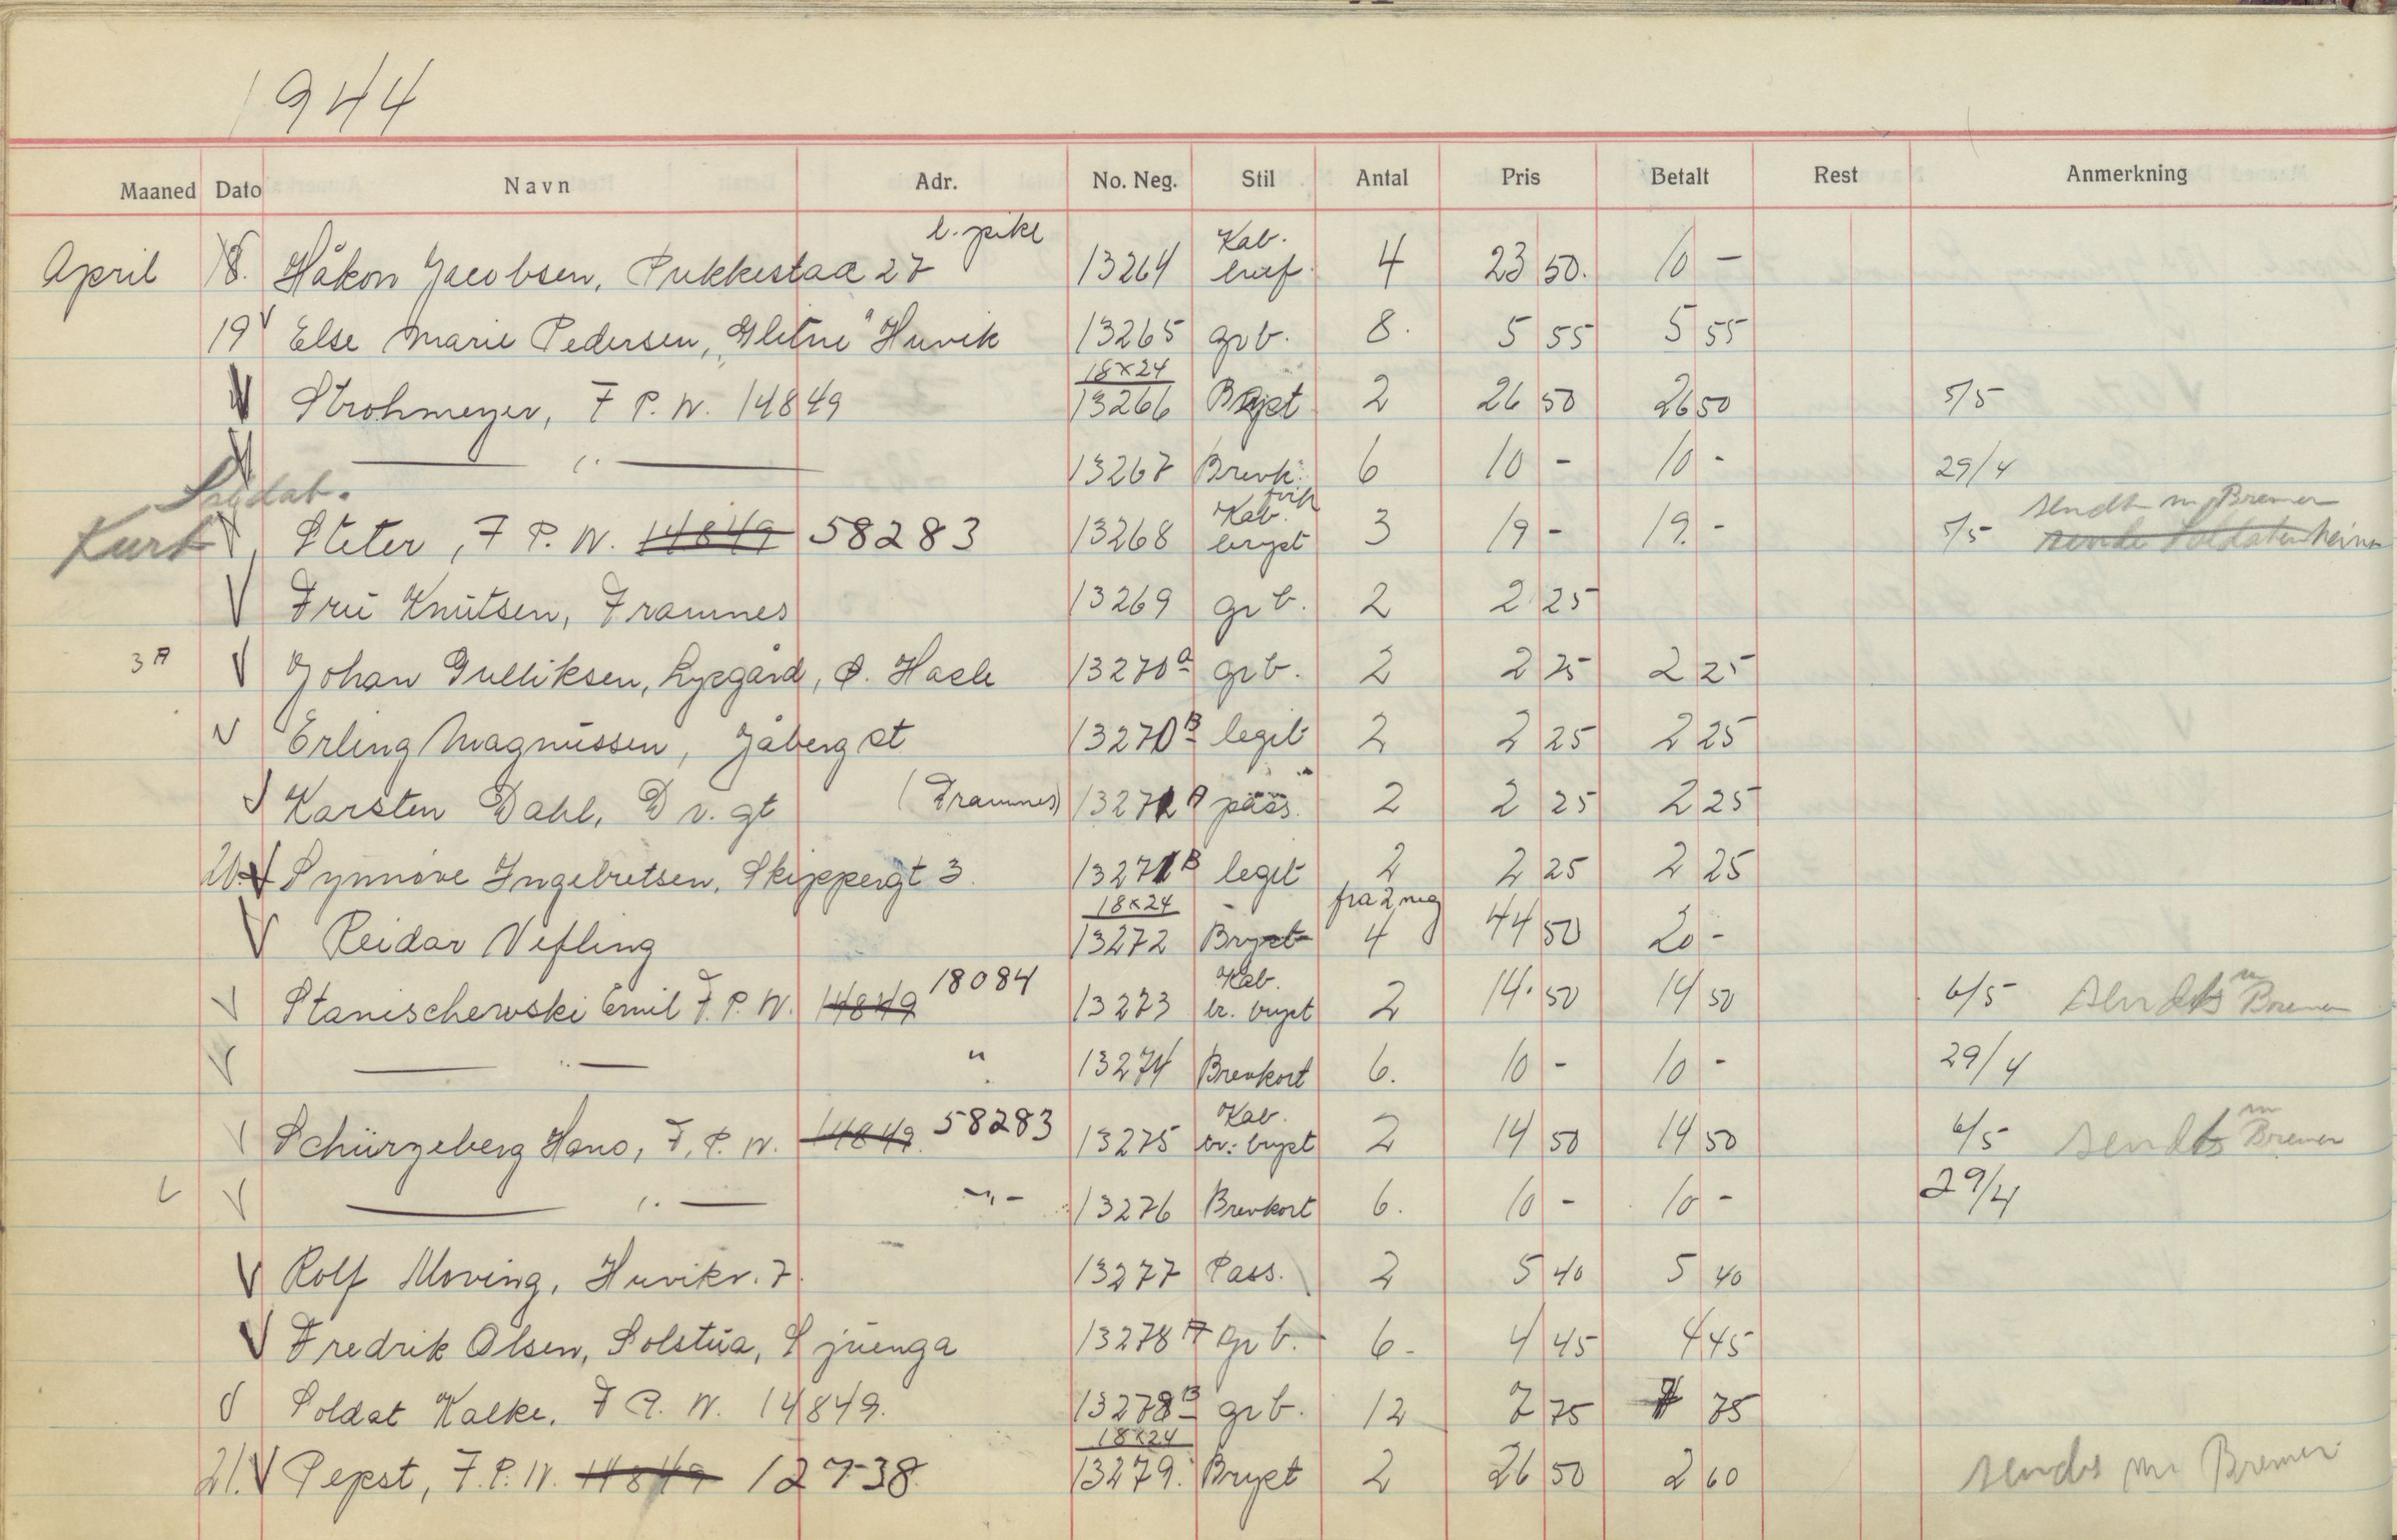 1944
Maaned Dato Navn Adr. No. Neg. Stil Antal Pris Betalt Rest Anmerkning
l. pike Kab.
April 18. Håkon Jacobsen, Pukkestad 27 13264 4 23 50. 10 -
19 Else Marie Pedersen, "Gletne" Huvik 13265 grb. 8. 5 55 5 55
18x24
Strohmeyer, F P. N. 14849 13266 Bryst 2 26 50 26 50 5/5
" 13267 Brevk. 6 10 - 10 - 29/4
Soldat. Kab. sendt m/Bremen
Kurt Steter, F P. N. 14849 58283 13268 bryst 3 19 - 19. - 5/5 sende Soldatenheim
Fru Knutsen, Framnes 13269 gr b. 2 2 25
3 A Johan Gulliksen, Lysgård, p. Hasle 13270a grb. 2 2 25 2 25
Erling Magnussen, Jåberg st 13270B legit 2 2 25 2 25
Karsten Dahl, D v. gt (Framnes) 13271 A pass. 2 2 25 2 25
20. Synnöve Ingebretsen, Skippergt 3. 13271B legit 2 2 25 2 25
18x24 fra 2 neg
Reidar Nefling 13272 Bryst 4 44 50 20 -
18084 Kab.
Stanischewski Emil F. P. N. 14849 13273 br. bryst 2 14. 50 14 50 6/5 sendes m Bremen
" " 13274 Brevkort 6. 10 - 10 - 29/4
Kab.
Schürzeberg Hans, F. P. N. 14849 58283 13275 br. bryst 2 14 50 14 50 6/5 sendes m Bremen
" -"- 13276 Brevkort 6. 10 - 10 - 29/4
Rolf Moving, Huvikv. 7. 13277 Pass. 2 5 40 5 40
Fredrik Olsen, Solstua, Sjuenga 13278 A gr b. 6 - 4 45 4 45
Soldat Kalke, F P. N. 14849. 13278B gr b. 12 7 75 7 75
18x24
21. Pepst, F. P. N. 14849 12738. 13279. Bryst 2 26 50 2 60 sendes m Bremen